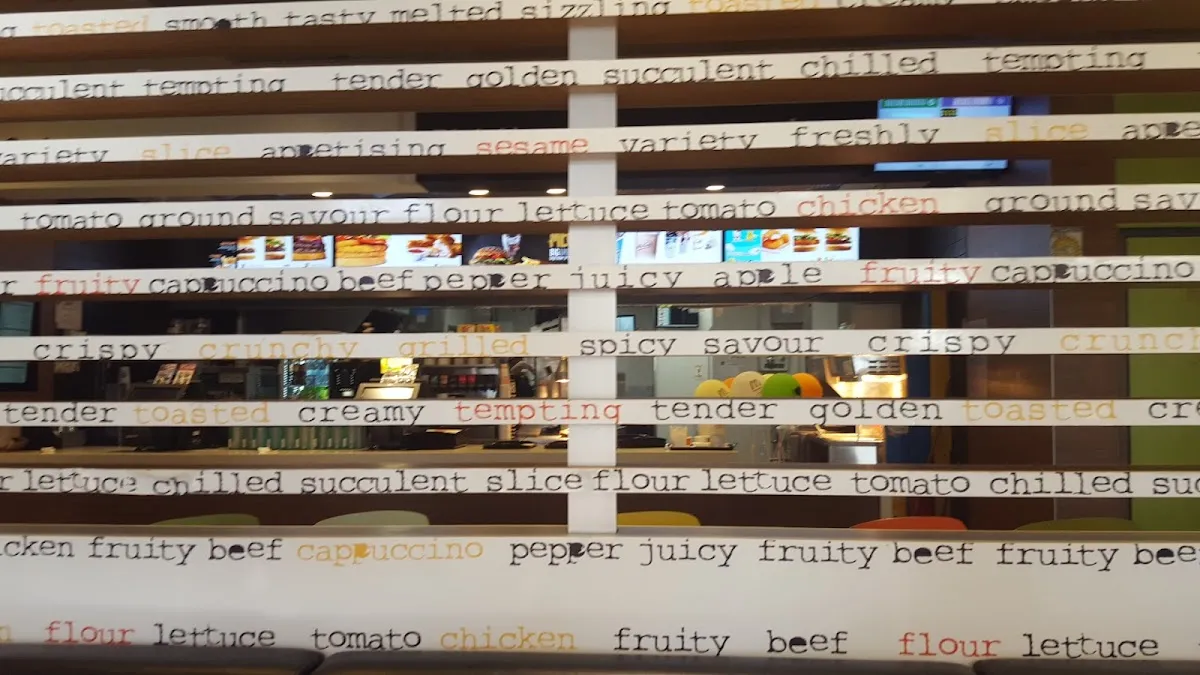 toasted smooth tasty melted sizzling toasted creamy
succulent tempting tender golden succulent chilled tempting
variety slice appetising sesame variety freshly slice
tomato ground savour flour lettuce tomato chicken ground
fruity cappuccino beef pepper juicy apple fruity cappuccino
crispy crunchy grilled spicy savour crispy
tender toasted creamy tempting tender golden toasted
lettuce chilled succulent slice flour lettuce tomato chilled
fruity beef cappuccino pepper juicy fruity beef fruity
flour lettuce tomato chicken fruity beef flour lettuce